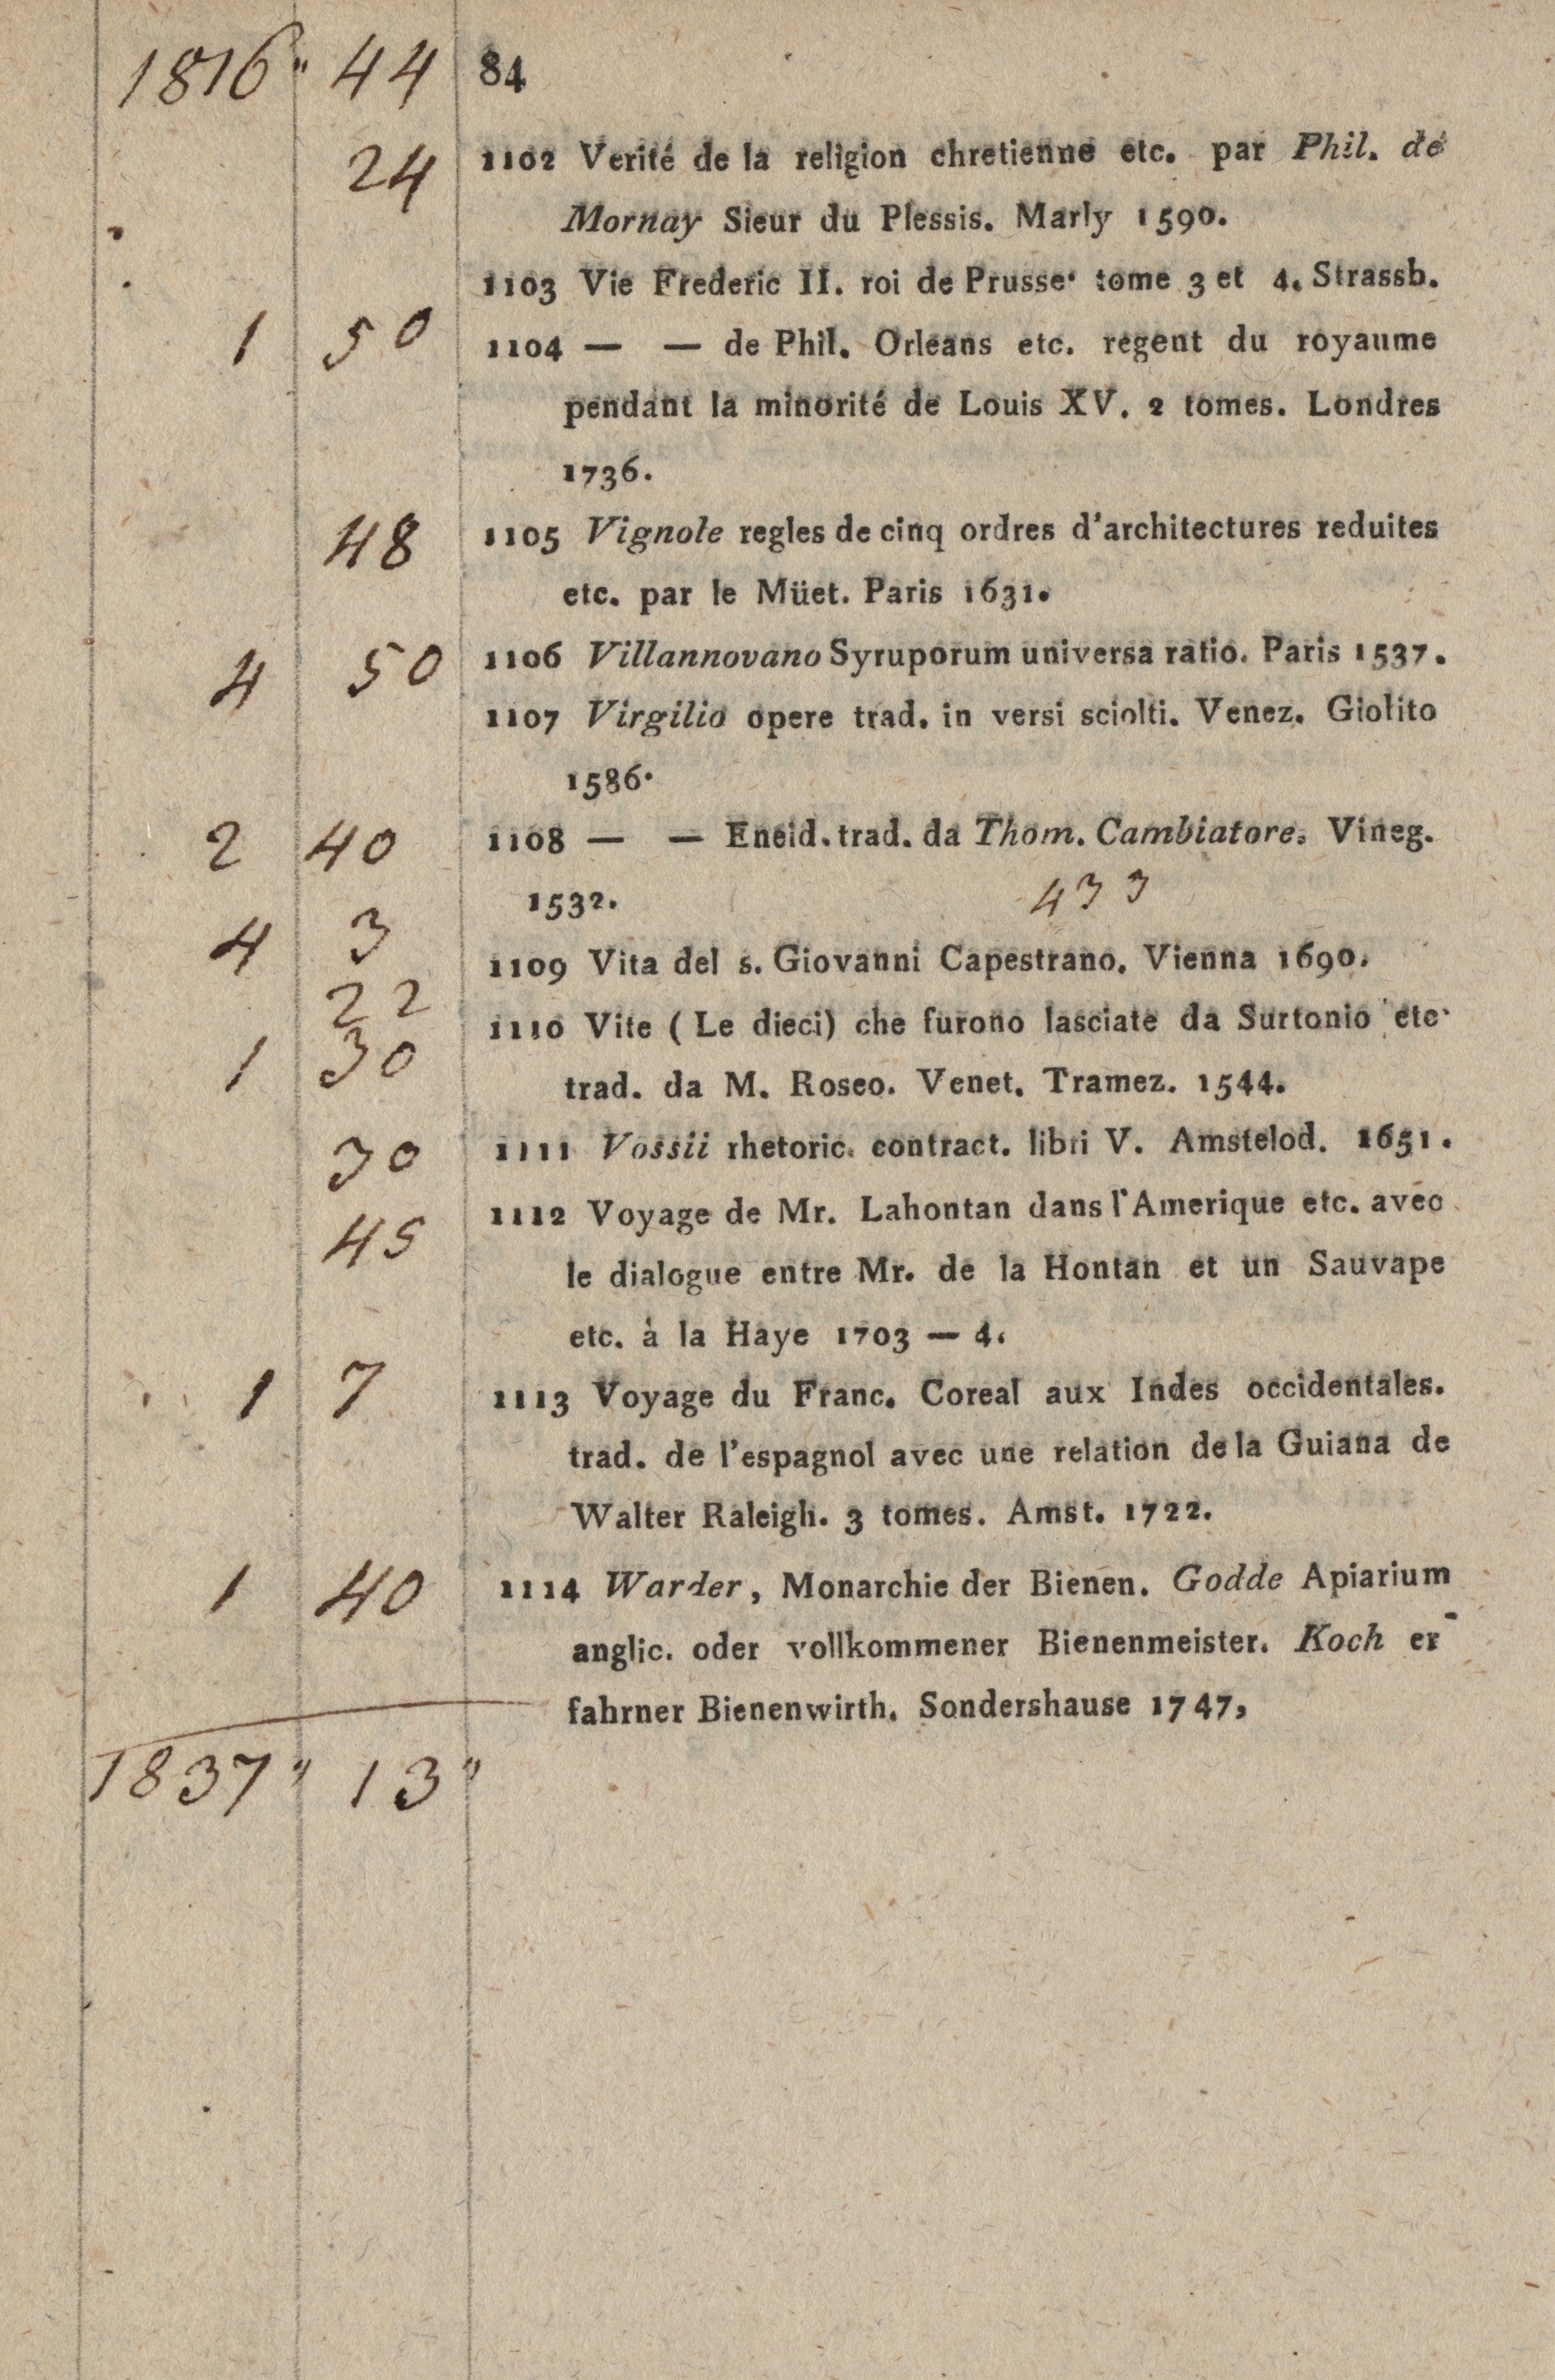 1816 " 44 84
24 1102 Verité de la religion chretienne etc. par Phil. de
Mornay Sieur du Plessis. Marly 1590.
1103 Vie Frederic II. roi de Prusse. tome 3 et 4. Strassb.
1 50 1104 — — de Phil. Orleans etc. regent du royaume
pendant la minorité de Louis XV. 2 tomes. Londres
1736.
48 1105 Vignole regles de cinq ordres d'architectures reduites
etc. par le Müet. Paris 1631.
4 50 1106 Villannovano Syruporum universa ratio. Paris 1537.
1107 Virgilio opere trad. in versi sciolti. Venez. Giolito
1586.
2 40 1108 — — Eneid. trad. da Thom. Cambiatore. Vineg.
1532. 433
4 3 1109 Vita del s. Giovanni Capestrano. Vienna 1690.
22
1110 Vite (Le dieci) che furono lasciate da Surtonio etc.
1 30
trad. da M. Roseo. Venet. Tramez. 1544.
30 1111 Vossii rhetoric. contract. libri V. Amstelod. 1651.
45 1112 Voyage de Mr. Lahontan dans l'Amerique etc. avec
le dialogue entre Mr. de la Hontan et un Sauvape
etc. à la Haye 1703 — 4.
1 7 1113 Voyage du Franc. Coreal aux Indes occidentales.
trad. de l'espagnol avec une relation de la Guiana de
Walter Raleigh. 3 tomes. Amst. 1722.
1 40 1114 Warder, Monarchie der Bienen. Godde Apiarium
anglic. oder vollkommener Bienenmeister. Koch er-
fahrner Bienenwirth. Sondershause 1747,
1837 " 13 "